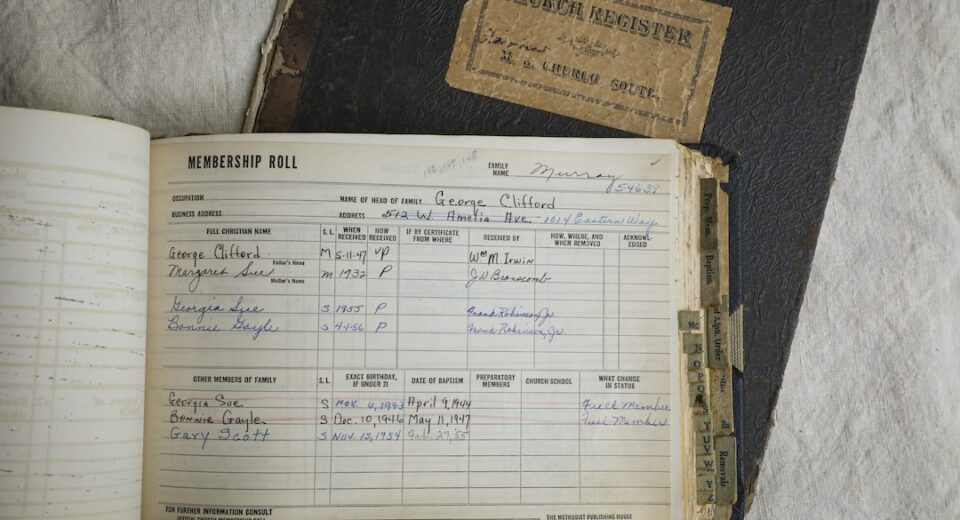 CHURCH REGISTER
M. E. CHURCH, SOUTH.
MEMBERSHIP ROLL
146, 147, 148
FAMILY NAME Murray
54639
OCCUPATION NAME OF HEAD OF FAMILY George Clifford
BUSINESS ADDRESS ADDRESS 512 W. Amelia Ave. - 1014 Eastern Way
FULL CHRISTIAN NAME S. L. WHEN RECEIVED HOW RECEIVED IF BY CERTIFICATE FROM WHERE RECEIVED BY HOW, WHERE, AND WHEN REMOVED ACKNOWL-EDGED
George Clifford M 5-11-47 VP Wm M Irwin
Father's Name
Margaret Sue M 1932 P J.W Branscomb
Mother's Name
Georgia Sue S 1955 P Frank Robinson, Jr.
Bonnie Gayle S 4-1-56 P Frank Robinson, Jr.
OTHER MEMBERS OF FAMILY S. L. EXACT BIRTHDAY, IF UNDER 21 DATE OF BAPTISM PREPARATORY MEMBERS CHURCH SCHOOL WHAT CHANGE IN STATUS
Georgia Sue S Nov. 6, 1943 April 9, 1944 Full Member
Bonnie Gayle S Dec. 10, 1946 May 11, 1947 Full Member
Gary Scott S Nov. 15, 1954 27, 55
FOR FURTHER INFORMATION CONSULT
THE METHODIST PUBLISHING HOUSE
Prep. Mem.
Baptism
Alph. Order
Removals
Mc
N
O
P
Q
T
U
V
W
Y
Z